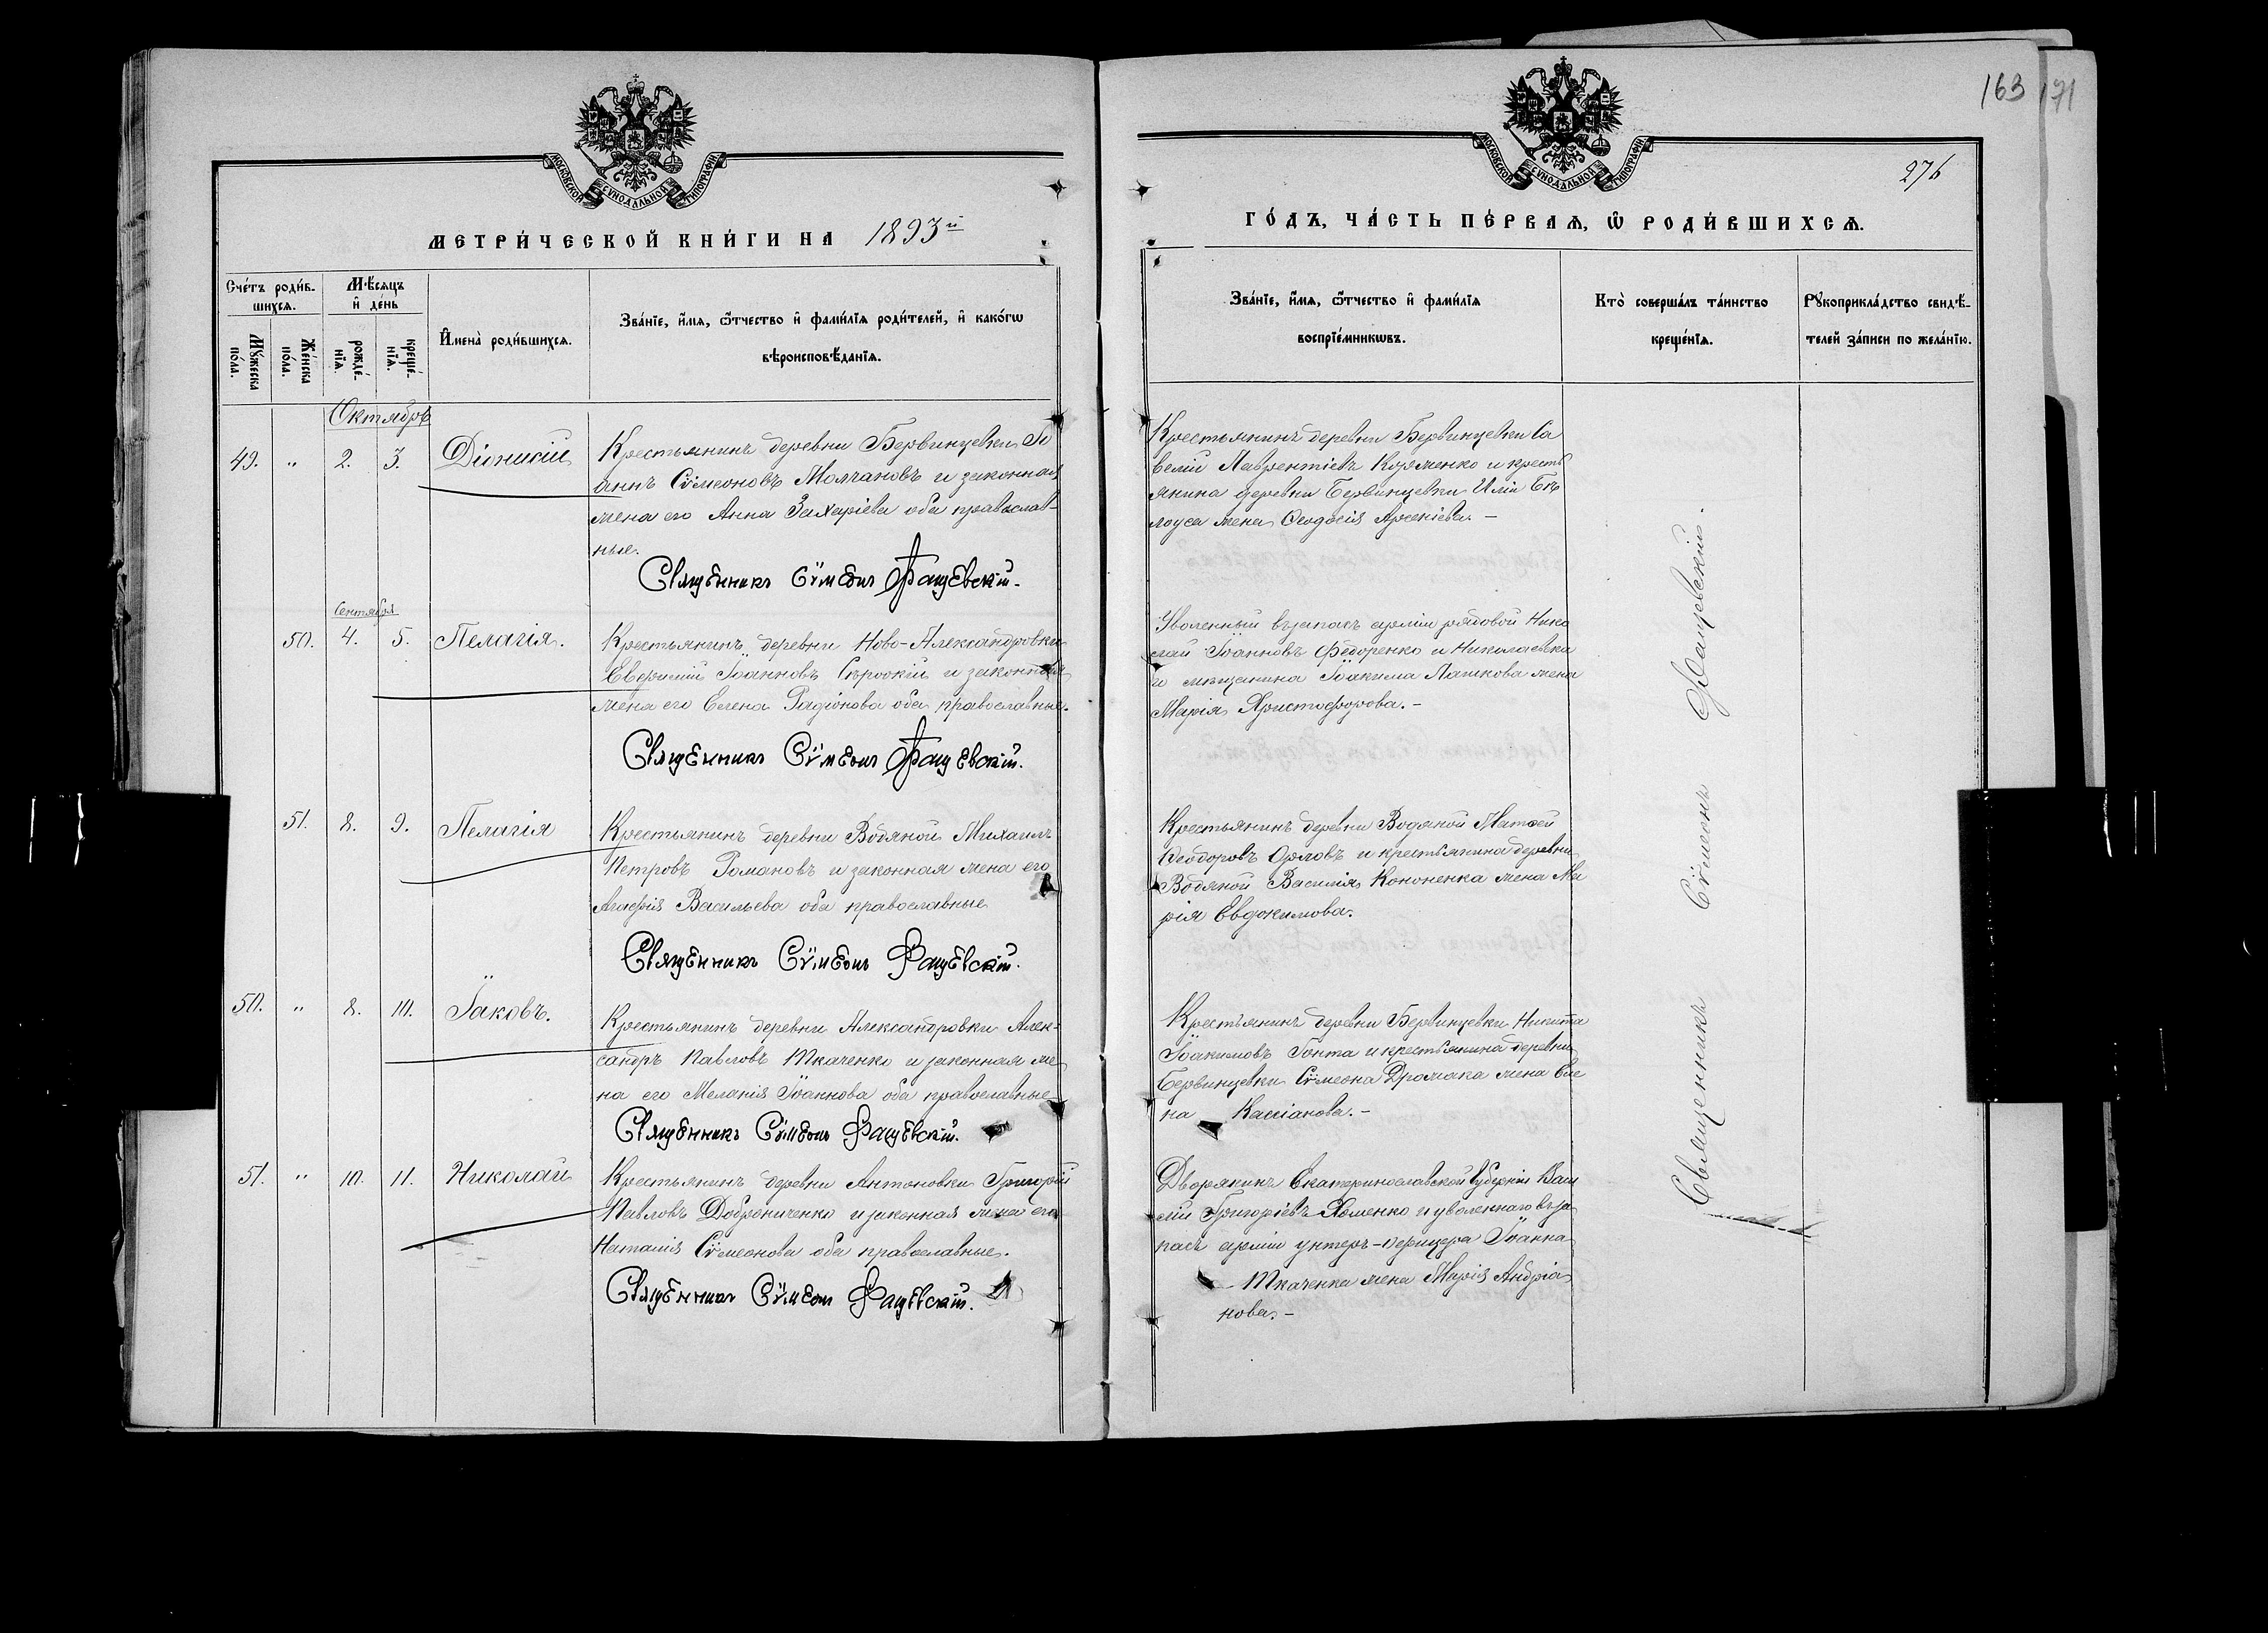 163 171
276
МОСКОВСКОЙ СѴНОДАЛЬНОЙ ТИПОГРАФІИ
МОСКОВСКОЙ СѴНОДАЛЬНОЙ ТИПОГРАФІИ
МЕТРИ́ЧЕСКОЙ КНИ́ГИ НА 1893й
ГО́ДЪ, ЧА́СТЬ ПЕ́РВАѦ, Ѿ РОДИ́ВШИХСѦ.
Сче́тъ роди́в-
шихсѧ.
Мꙋ́жеска по́ла.
Же́нска по́ла.
Мѣ́сѧцъ
и҆ де́нь
рожде́-нїѧ
креще́-нїѧ.
И҆мена̀ роди́вшихсѧ.
Зва́нїе, и҆́мѧ, ѻ҆́тчество и҆ фами́лїѧ роди́телей, и҆ како́гѡ
вѣроисповѣ́данїѧ.
Зва́нїе, и҆́мѧ, ѻ҆́тчество и҆ фами́лїѧ
воспрїе́мникѡвъ.
Кто̀ соверша́лъ та́инство
креще́нїѧ.
Рꙋкоприкла́дство свидѣ́-
телей за́писи по жела́нїю.
Октябрь
49. " 2. 3. Діонисій
Крестьянинъ деревни Бервинцевки Іо
аннъ Сѵмеоновъ Молчановъ и законная
жена его Анна Захаріева оба православ-
ные.
Священникъ Сѵмеонъ Фащевскій.
Крестьянинъ деревни Бервинцевки Са
велій Лаврентіевъ Кузменко и кресть
янина деревни Бервинцевки Иліи Бѣ
лоуса жена Ѳеодосія Арсеніева.-
Сентября
50. 4. 5. Пелагія.
Крестьянинъ деревни Ново-Александровки
Евфимій Іоанновъ Сѣроокій и законная
жена его Елена Радіонова оба православные.
Священникъ Сѵмеонъ Фащевскій.
Уволенный въ запасъ арміи рядовой Нико
лай Іоанновъ Федоренко и Николаевска
го мѣщанина Іоакима Лашкова жена
Марія Христофорова.-
51. 8. 9. Пелагія
Крестьянинъ деревни Водяной Михаилъ
Петровъ Романовъ и законная жена его
Агафія Васильева оба православные
Священникъ Сѵмеонъ Фащевскій.
Крестьянинъ деревни Водяной Матѳей
Ѳеодоровъ Орловъ и крестьянина деревни
Водяной Василія Кононенка жена Ма
рія Евдокимова.
50. " 8. 10. Іаковъ.
Крестьянинъ деревни Александровки Алек-
сандръ Павловъ Ткаченко и законная же
на его Меланія Іоаннова оба православные
Священникъ Сѵмеонъ Фащевскій.
Крестьянинъ деревни Бервинцевки Никита
Іоакимовъ Гонта и крестьянина деревни
Бервинцевки Сѵмеона Дромака жена Еле
на Кассіанова.-
51. " 10. 11. Николай
Крестьянинъ деревни Антоновки Григорій
Павловъ Доброниченко и законная жена его
Наталія Сѵмеонова оба православные.
Священникъ Сѵмеонъ Фащевскій.
Дворянинъ Екатеринославской губерніи Васи
лій Григоріевъ Явменко и уволеннаго въ за
пасъ арміи унтеръ-офицера Іоанна
Ткаченка жена Марія Андріа
нова.-
Священникъ Сѵмеонъ Фащевскій.